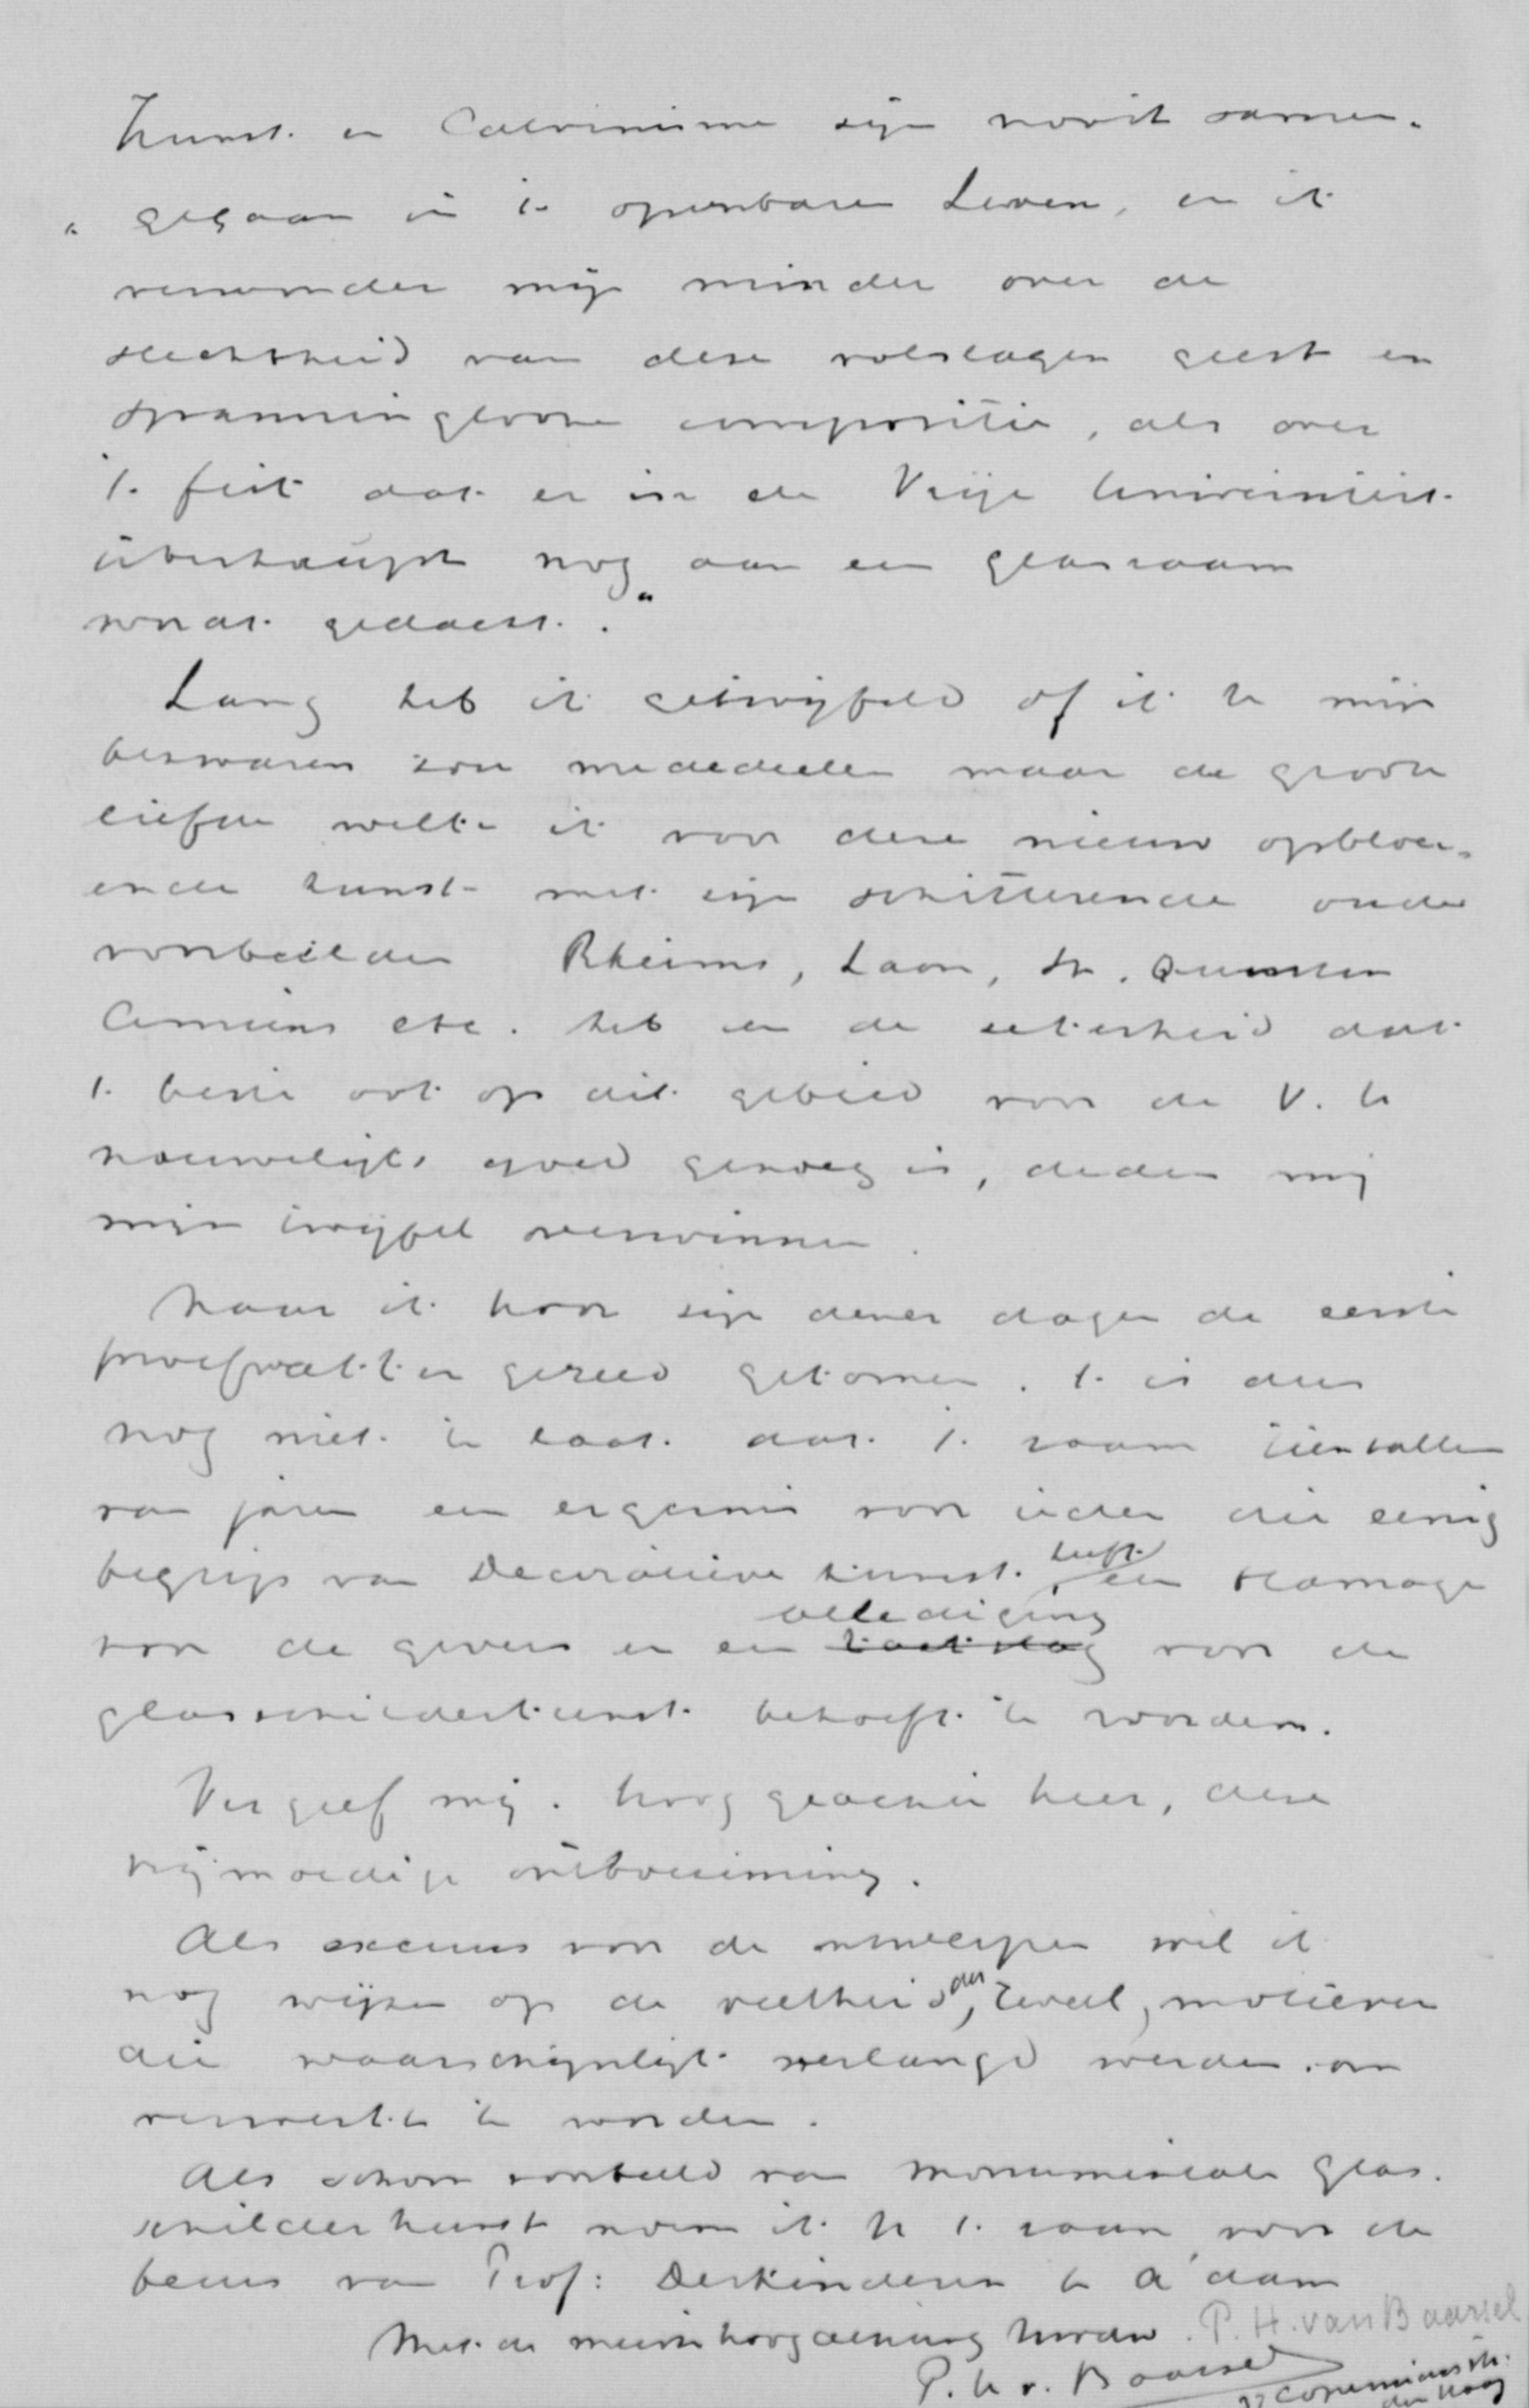 Kunst en Calvinisme zijn nooit samen-
" gegaan in 't openbare Leven, en ik
verwonder mij minder over de
slechtheid van deze volslagen geest en
spanninglooze compositie, als over
't feit dat er in de Vrije Universiteit
überhaupt nog aan een glasraam
wordt gedacht."
Lang heb ik getwijfeld of ik U mijn
bezwaren zou mededeelen maar de groote
liefde welke ik voor deze nieuw opbloei-
ende kunst met zijn schitterende oude
voorbeelden Rheims, Laon, St. Quentin
Amiens etc. heb en de zekerheid dat
't beste ook op dit gebied voor de V. U
nauwelijks goed genoeg is, deden mij
mijn twijfel overwinnen.
Naar ik hoor zijn dezer dagen de eerste
proefvakken gereed gekomen. 't is dus
nog niet te laat dat 't raam tientallen
van jaren een ergernis voor ieder die eenig
begrip van Decoratieve kunst heeft, een blamage
voor de gevers en een kaakslag beleediging voor de
glasschilderkunst behoeft te worden.
Vergeef mij. hooggeachte heer, deze
vrijmoedige ontboezeming.
Als excuus voor de ontwerper wil ik
nog wijzen op de veelheid der, Zeveel, motieven
die waarschijnlijk verlangd werden om
verwerkt te worden.
Als schoon voorbeeld van monumentale glas-
schilderkunst noem ik U 't raam voor de
beurs van Prof: Derkinderen te A'dam
Met de meeste hoogachting Uwdw. P. H. van Baarsel
P. H v. Baarsel
Copernicusstr.
den Haag